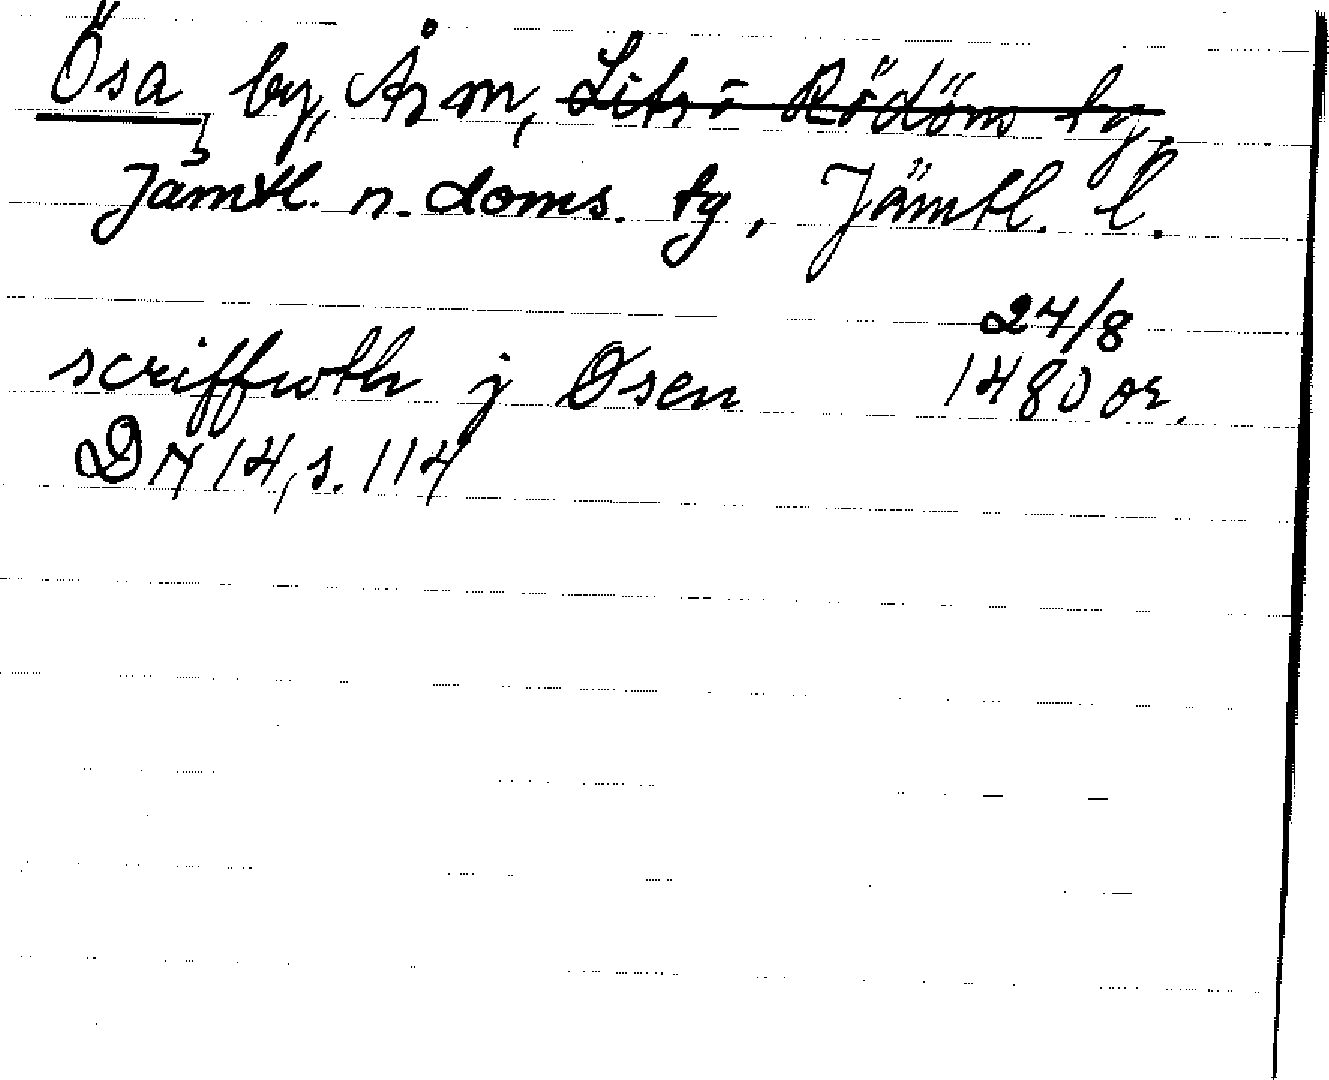 Ösa by, Ås sn, Lits o Rödöns tg,
Jämtl. n. doms. tg, Jämtl. l.
24/8
scriffwth j Øsen 1480 or.
DN 14, s. 114